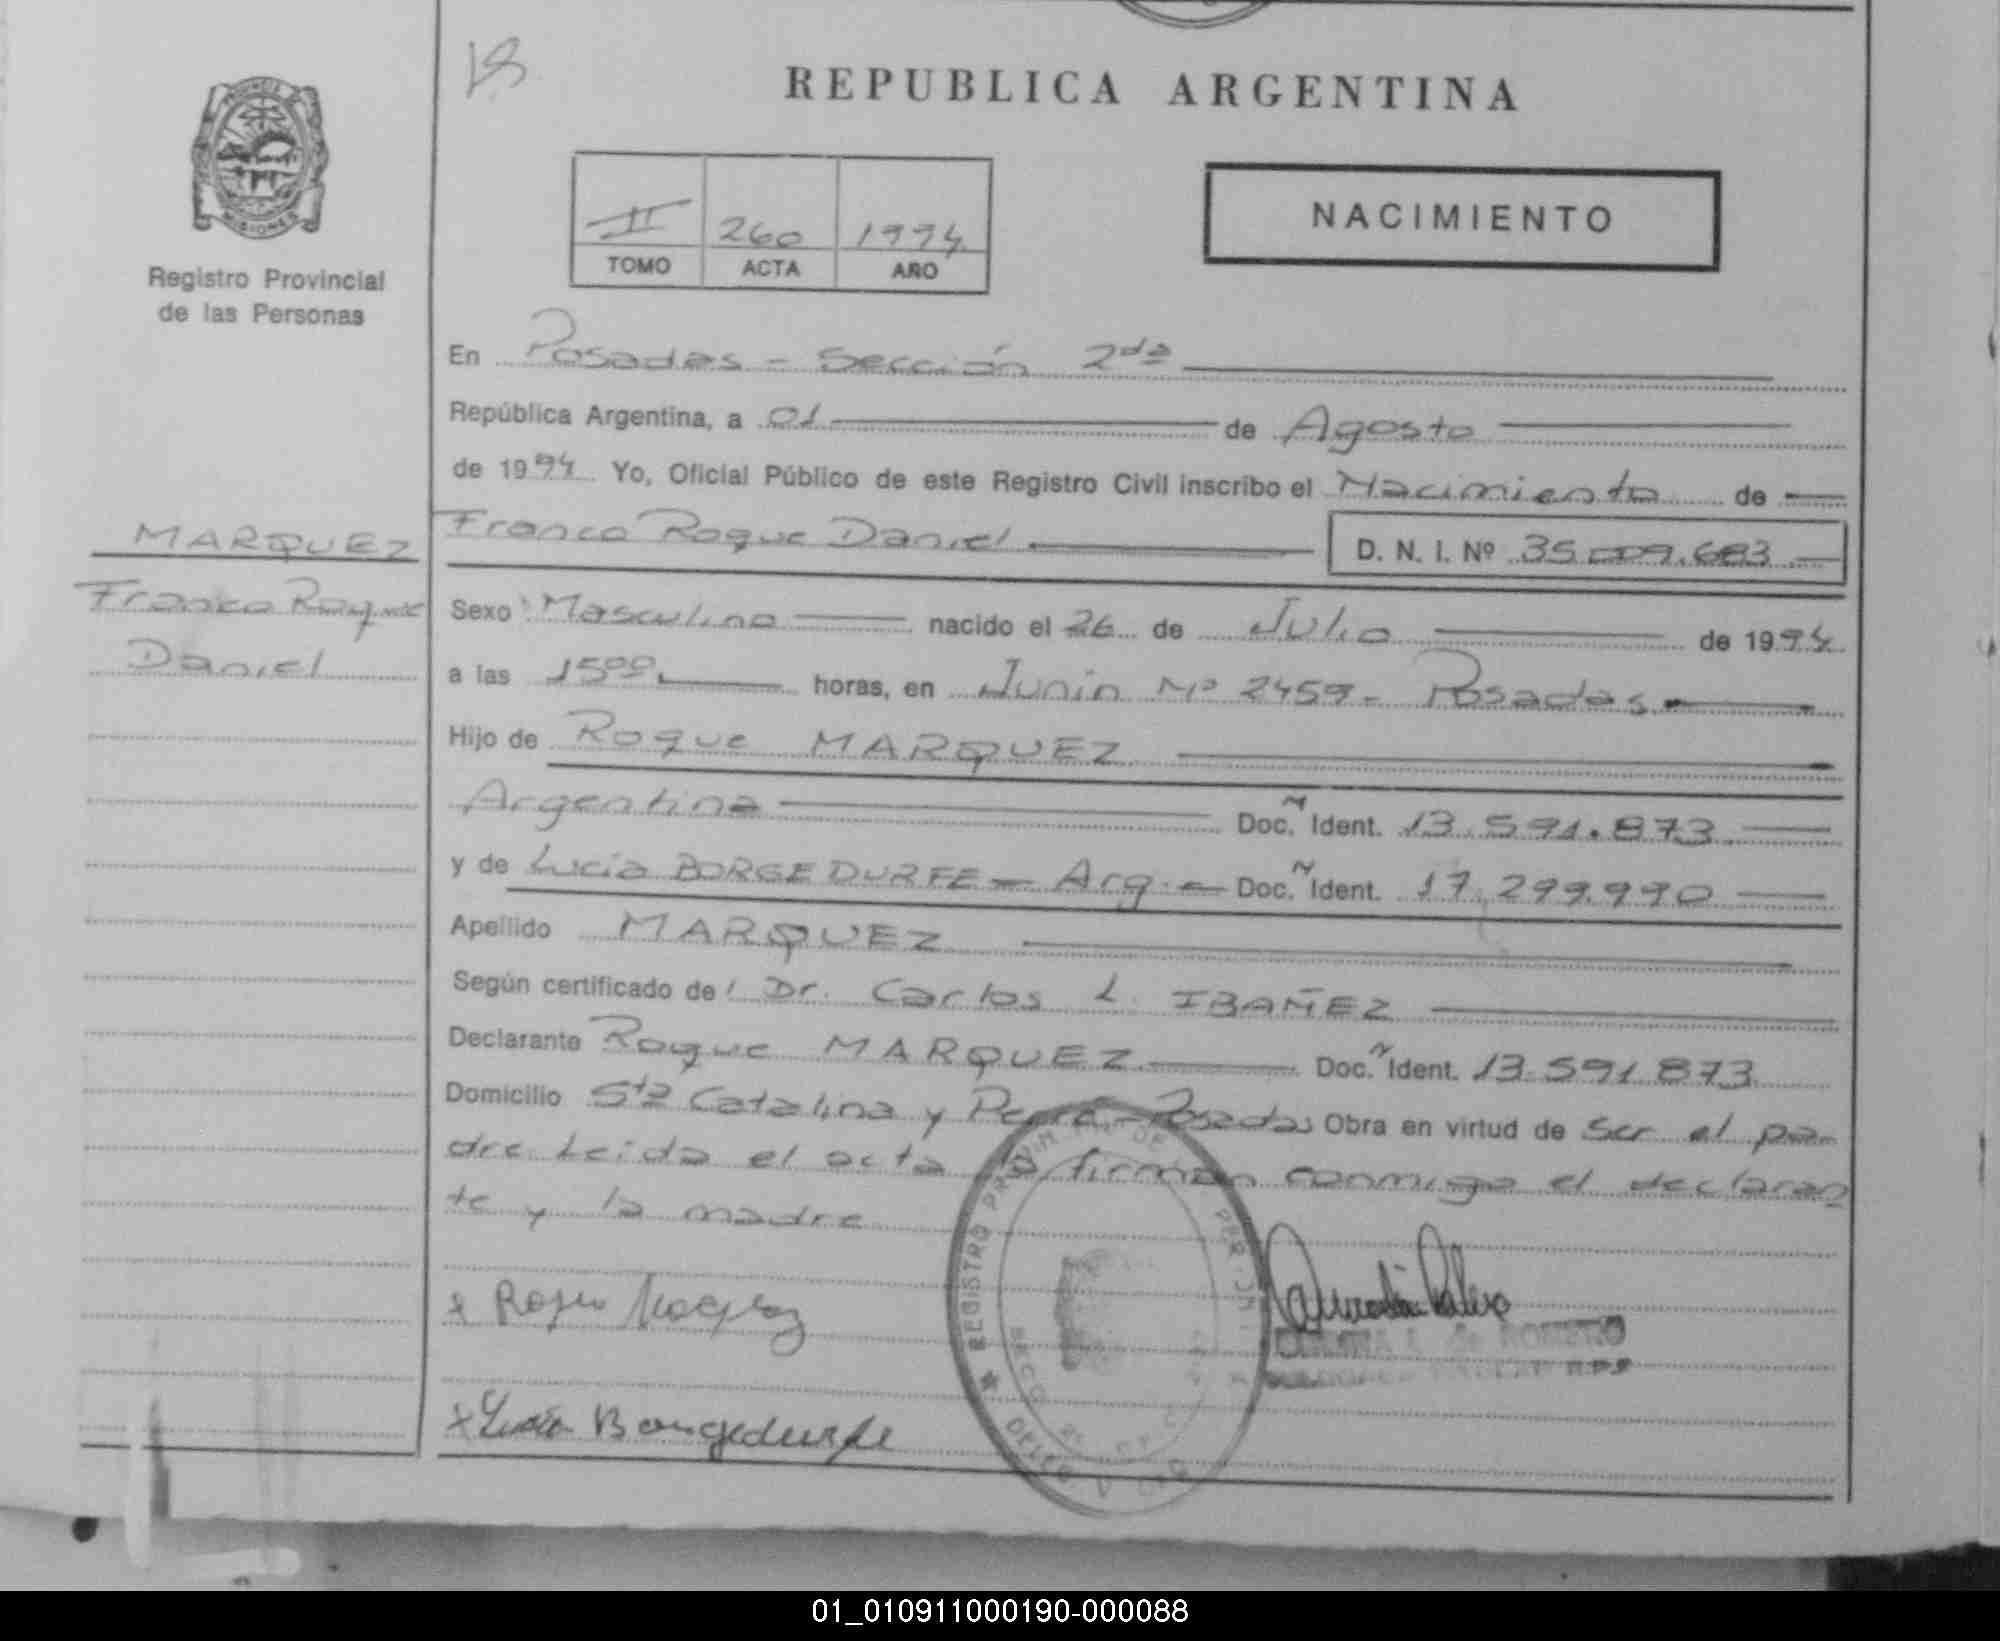 REPUBLICA ARGENTINA
MISIONES
Registro Provincial
de las Personas
II 260 1994
TOMO ACTA AÑO
NACIMIENTO
En Posadas - Sección 2da
República Argentina, a 01 de Agosto
de 1994 Yo, Oficial Público de este Registro Civil inscribo el Nacimiento de
MARQUEZ
Franco Roque
Daniel
Franco Roque Daniel D. N. I. Nº 35.009.683
Sexo Masculino nacido el 26 de Julio de 1994
a las 1500 horas, en Junin Nº 2459 - Posadas
Hijo de Roque MARQUEZ
Argentina Doc. Ident. 13.591.873
y de Lucia BORGEDURFE - Arg. - Doc. Ident. 17.299.990
Apellido MARQUEZ
Según certificado de Dr. Carlos L. IBAÑEZ
Declarante Roque MARQUEZ Doc. Ident. 13.591.873
Domicilio Sta Catalina y - Posadas Obra en virtud de ser el pa-
dre Leida el acta la firman conmigo el declaran
te y la madre
x Roque Marquez
x Lucia Borgedurfe
REGISTRO
ROMERO
01_010911000190-000088